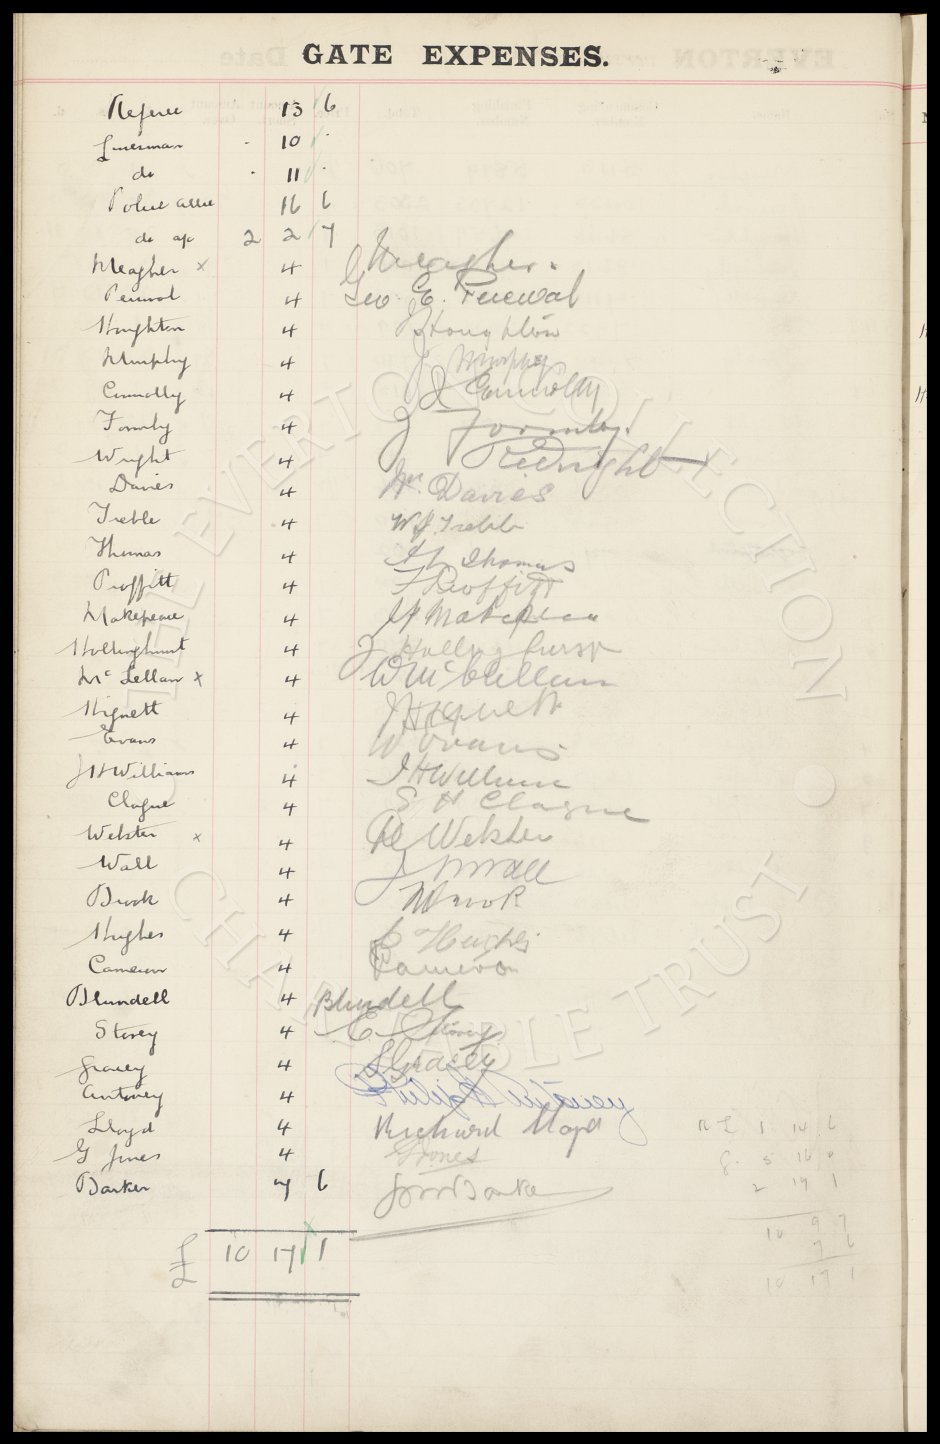 GATE EXPENSES.
Referee 13 6
Linesman . 10 .
do . 11 .
Police 16 6
do 2 2 7
Meagher x 4 Meagher.
Percival 4 Geo. E. Percival
Houghton 4 Houghton
Murphy 4 J Murphy
Connolly 4 J Connolly
Formby 4 J Formby.
Wright 4 Wright
Davies 4 Wm Davies
Treble 4 W J Treble
Thomas 4 Thomas
Proffitt 4 F Proffitt
Makepeace 4 Makepeace
Hollinghurst 4 J Hollinghurst
McLellan x 4 W McLellan
Hignett 4 J Hignett
Evans 4 W Evans
J H Williams 4 J H Williams
Clague 4 E H Clague
Webster x 4 Webster
Wall 4 J Wall
Brook 4 Brook
Hughes 4 Hughes
Cameron 4 Cameron
Blundell 4 Blundell
Storey 4 E. Storey
Gracey 4 Gracey
Antoney 4 Philip Antoney
Lloyd 4 Richard Lloyd
G Jones 4 G Jones
Barker 7 6 Barker
1 14 6
5 16 0
2 19 1
10 9 7
7 6
£ 10 17 1
10 17 1
THE EVERTON COLLECTION CHARITABLE TRUST ©